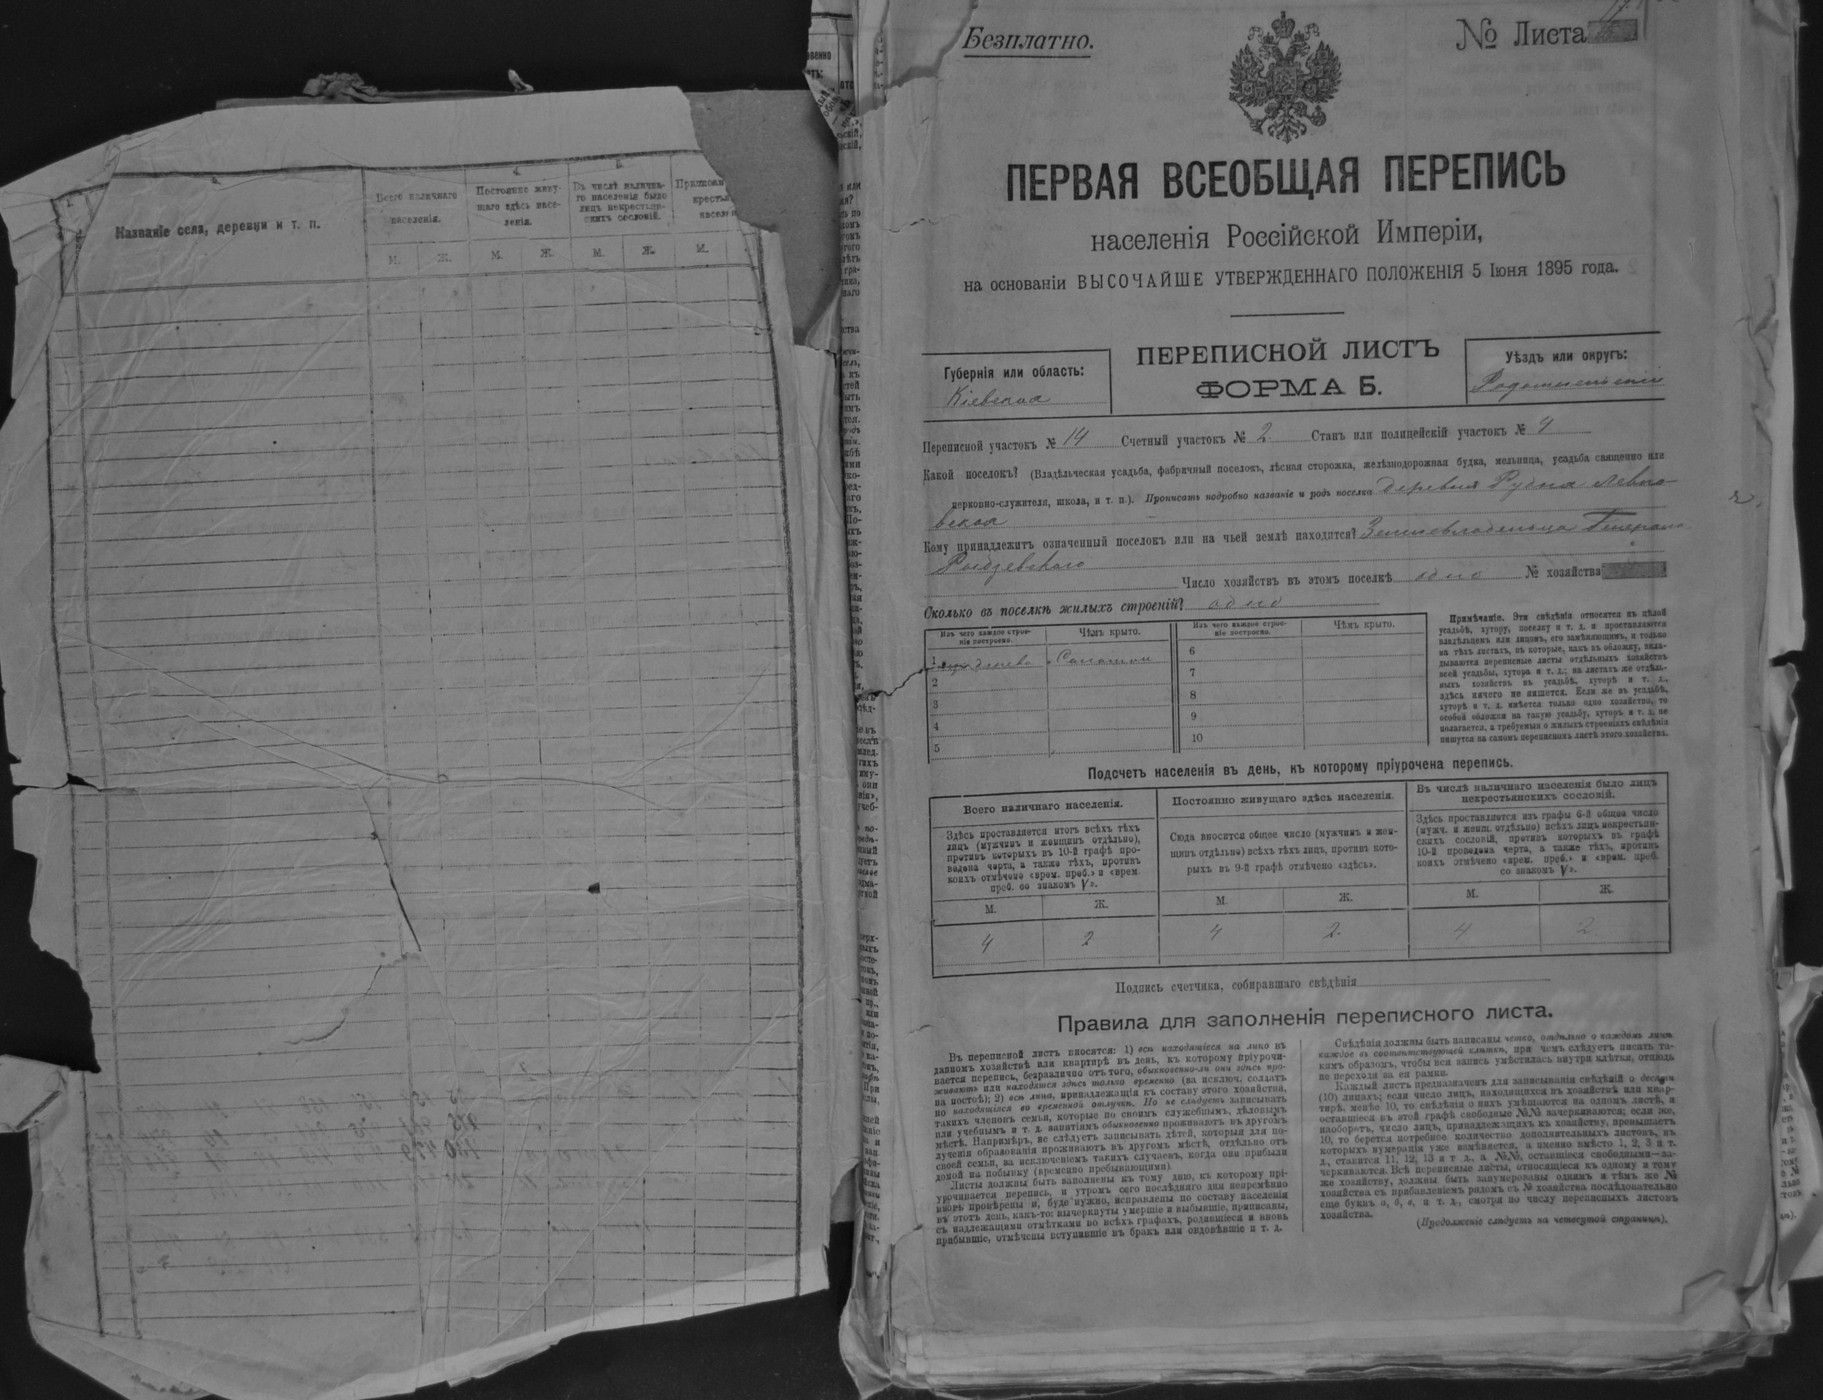 Названіе села, деревни и т. п.
Всего наличнаго
населенія.
4.
Постоянно живу-
щаго здѣсь насе-
ленія.
5.
Въ числѣ налична-
го населенія было
лицъ некрестьян-
скихъ сословій.
М. Ж. М. Ж. М. Ж. М.
Безплатно.
№ Листа
ПЕРВАЯ ВСЕОБЩАЯ ПЕРЕПИСЬ
населенія Россійской Имперіи,
на основаніи ВЫСОЧАЙШЕ УТВЕРЖДЕННАГО ПОЛОЖЕНІЯ 5 Іюня 1895 года.
Губернія или область:
Кіевская
ПЕРЕПИСНОЙ ЛИСТЪ
ФОРМА Б.
Уѣздъ или округъ:
Радомысльскій
Переписной участокъ № 14 Счетный участокъ № 2 Станъ или полицейскій участокъ № 4
Какой поселокъ? (Владѣльческая усадьба, фабричный поселокъ, лѣсная сторожка, желѣзнодорожная будка, мельница, усадьба священно или
церковно-служителя, школа, и т. п.). Прописать подробно названіе и родъ поселка деревня Рудня Левко-
вская
Кому принадлежитъ означенный поселокъ или на чьей землѣ находится? Землевладельца Генерала
Число хозяйствъ въ этомъ поселкѣ одно № хозяйства
Сколько въ поселкѣ жилыхъ строеній? одно
Изъ чего каждое строе-
ніе построено.
Чѣмъ крыто.
Изъ чего каждое строе-
ніе построено.
Чѣмъ крыто.
1 дерева Соломой
2
3
4
5
6
7
8
9
10
Примѣчаніе. Эти свѣдѣнія относятся къ цѣлой
усадьбѣ, хутору, поселку и т. д. и проставляются
владѣльцемъ или лицомъ, его замѣняющимъ, и только
на тѣхъ листахъ, въ которые, какъ въ обложку, вкла-
дываются переписные листы отдѣльныхъ хозяйствъ
всей усадьбы, хутора и т. д.; на листахъ же отдѣль-
ныхъ хозяйствъ въ усадьбѣ, хуторѣ и т. д.,
здѣсь ничего не пишется. Если же въ усадьбѣ,
хуторѣ и т. д. имѣется только одно хозяйство, то
особой обложки на такую усадьбу, хуторъ и т. д. не
полагается, а требуемыя о жилыхъ строеніяхъ свѣдѣнія
пишутся на самомъ переписномъ листѣ этого хозяйства.
Подсчетъ населенія въ день, къ которому пріурочена перепись.
Всего наличнаго населенія.
Здѣсь проставляется итогъ всѣхъ тѣхъ
лицъ (мужчинъ и женщинъ отдѣльно),
противъ которыхъ въ 10-й графѣ про-
ведена черта, а также тѣхъ, противъ
коихъ отмѣчено «врем. преб.» и «врем.
преб. со знакомъ V».
Постоянно живущаго здѣсь населенія.
Сюда вносится общее число (мужчинъ и жен-
щинъ отдѣльно) всѣхъ тѣхъ лицъ, противъ кото-
рыхъ въ 9-й графѣ отмѣчено «здѣсь».
Въ числѣ наличнаго населенія было лицъ
некрестьянскихъ сословій.
Здѣсь проставляется изъ графы 6-й общее число
(мужч. и женщ. отдѣльно) всѣхъ лицъ некрестьян-
скихъ сословій, противъ которыхъ въ графѣ
10-й проведена черта, а также тѣхъ, противъ
коихъ отмѣчено «врем. преб.» и «врем. преб.
со знакомъ V».
М. Ж. М. Ж. М. Ж.
4 2 4 2. 4 2.
Подпись счетчика, собиравшаго свѣдѣнія
Правила для заполненія переписного листа.
Въ переписной листъ вносятся: 1) всѣ находящіеся на лицо въ
данномъ хозяйствѣ или квартирѣ въ день, къ которому пріурочи-
вается перепись, безразлично отъ того, обыкновенно-ли они здѣсь про-
живаютъ или находятся здѣсь только временно (за исключ. солдатъ
на постоѣ); 2) всѣ лица, принадлежащія къ составу этого хозяйства,
но находящіяся во временной отлучкѣ. Но не слѣдуетъ записывать
такихъ членовъ семьи, которые по своимъ служебнымъ, дѣловымъ
или учебнымъ и т. д. занятіямъ обыкновенно проживаютъ въ другомъ
мѣстѣ. Напримѣръ, не слѣдуетъ записывать дѣтей, которыя для по-
лученія образованія проживаютъ въ другомъ мѣстѣ, отдѣльно отъ
своей семьи, за исключеніемъ такихъ случаевъ, когда они прибыли
домой на побывку (временно пребывающими).
Листы должны быть заполнены къ тому дню, къ которому прі-
урочивается перепись, и утромъ сего послѣдняго дня непремѣнно
вновь провѣрены и, буде нужно, исправлены по составу населенія
въ этотъ день, какъ-то: вычеркнуты умершіе и выбывшіе, приписаны,
съ надлежащими отмѣтками во всѣхъ графахъ, родившіеся и вновь
прибывшіе, отмѣчены вступившіе въ бракъ или овдовѣвшіе и т. д.
Свѣдѣнія должны быть написаны четко, отдѣльно о каждомъ лицѣ,
каждое въ соотвѣтствующей клѣткѣ, при чемъ слѣдуетъ писать та-
кимъ образомъ, чтобы вся запись умѣстилась внутри клѣтки, отнюдь
не переходя за ея рамки.
Каждый листъ предназначенъ для записыванія свѣдѣній о десяти
(10) лицахъ; если число лицъ, находящихся въ хозяйствѣ или квар-
тирѣ, менѣе 10, то свѣдѣнія о нихъ умѣщаются на одномъ листѣ, и
остающіеся въ этой графѣ свободные №№ зачеркиваются; если же,
наоборотъ, число лицъ, принадлежащихъ къ хозяйству, превышаетъ
10, то берется потребное количество дополнительныхъ листовъ, въ
которыхъ нумерація уже измѣняется, а именно вмѣсто 1, 2, 3 и т.
д., ставится 11, 12, 13 и т д., а №№, оставшіеся свободными—за-
черкиваются. Всѣ переписные листы, относящіеся къ одному и тому
же хозяйству, должны быть занумерованы однимъ и тѣмъ же №
хозяйства съ прибавленіемъ рядомъ съ № хозяйства послѣдовательно
еще буквъ а, б, в, и т. д., смотря по числу переписныхъ листовъ
хозяйства.
(Продолженіе слѣдуетъ на четвертой страницѣ).